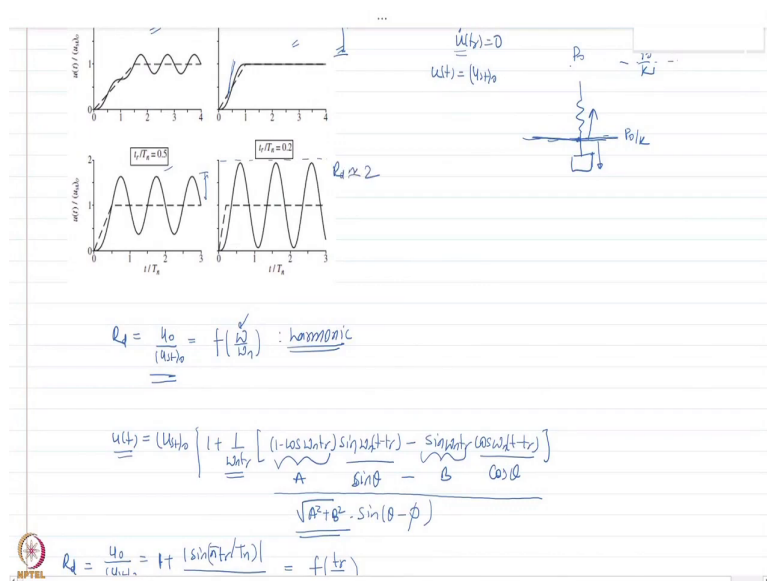 ...
u(t) / (ust)0
1
0
0 1 2 3 4
0 1 2 3 4
u̇(tr) = 0
u(t) = (ust)0
P0
P0/k
u(t) / (ust)0
2
1
0
tr/Tn = 0.5
tr/Tn = 0.2
Rd ≃ 2
0 1 2 3
0 1 2 3
t/Tn
t/Tn
Rd = u0/(ust)0 = f(ω/ωn) : harmonic
u(t) = (ust)0 { 1 + 1/ωntr [ (1-cosωntr) sinωn(t-tr) - sinωntr cosωn(t-tr) ]
A sinθ - B cosθ
√A²+B² · sin(θ-φ)
Rd = u0/(ust)0 = 1 + |sin(πtr/Tn)| = f(tr)
NPTEL